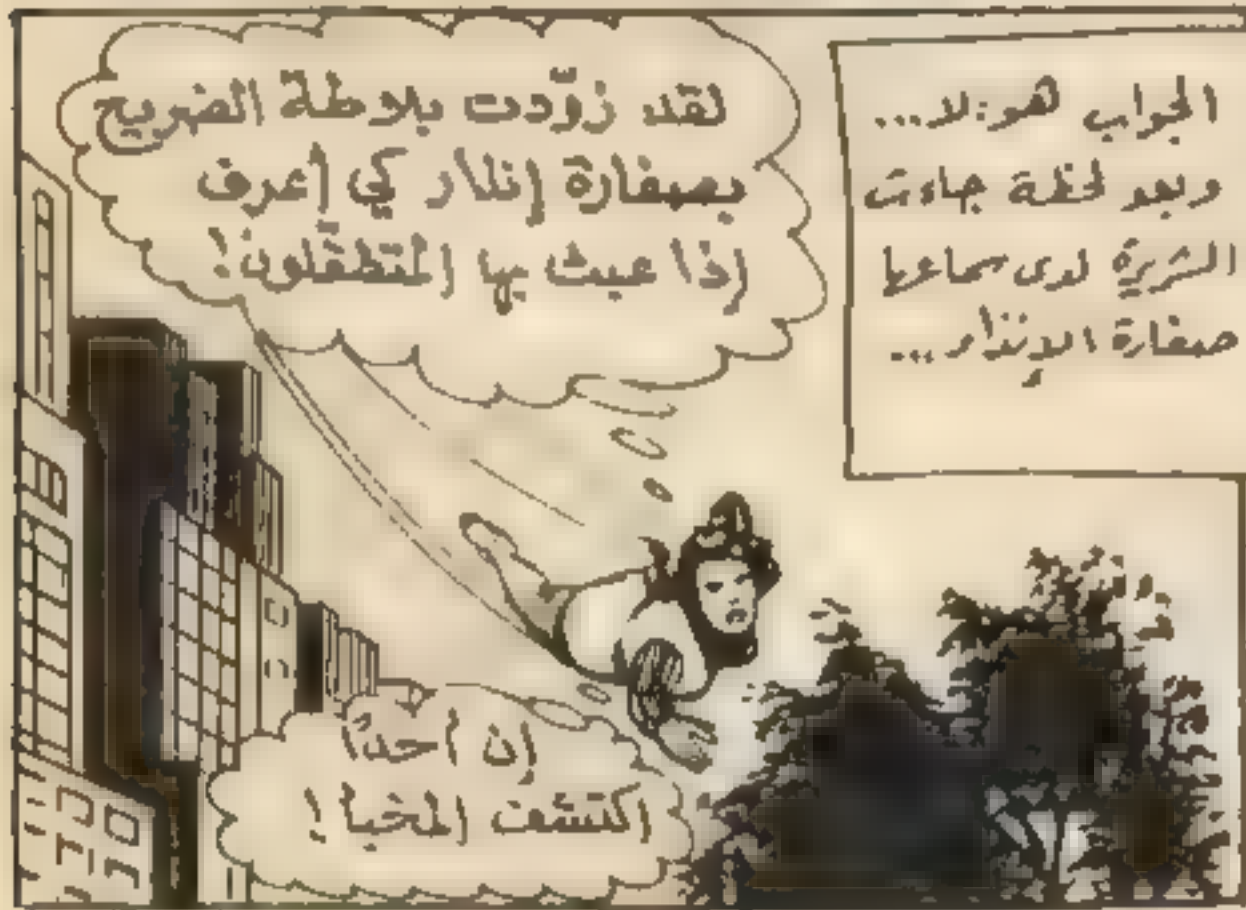 الجواب هو: لا...
وبعد لحظة جاءت
الشريرة لدى سماعها
صفارة الإنذار...
لقد زوّدت بلاطة الضريح
بصفارة إنذار كي أعرف
إذا عبث بها المتطفّلون!
إن أحدًا
اكتشف المخبأ!